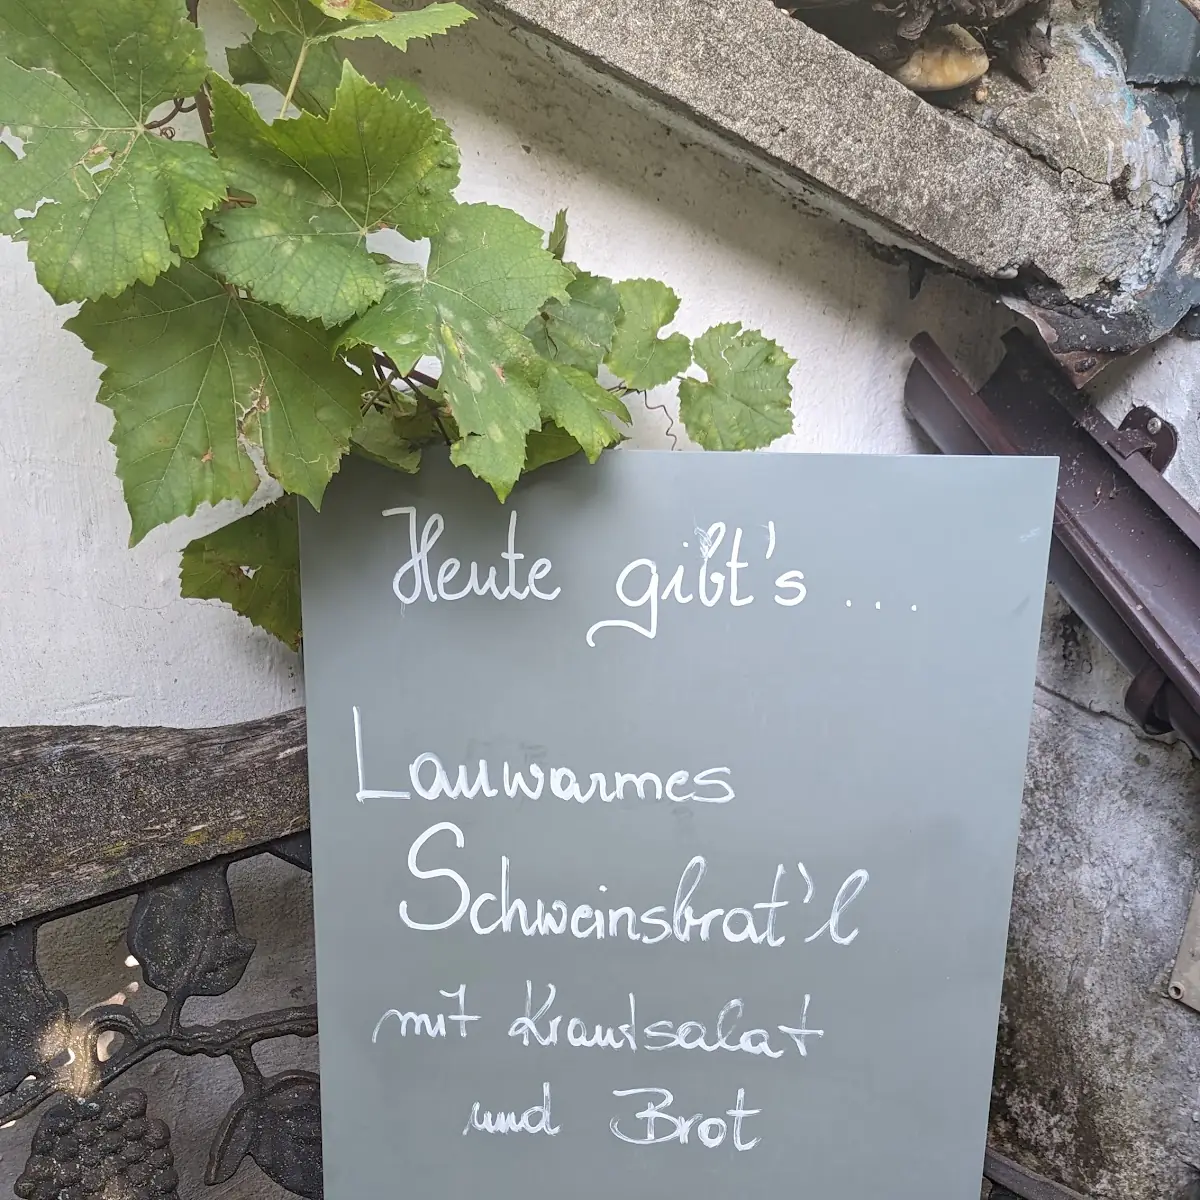 Heute gibt's ...
Lauwarmes
Schweinsbrat'l
mit Krautsalat
und Brot